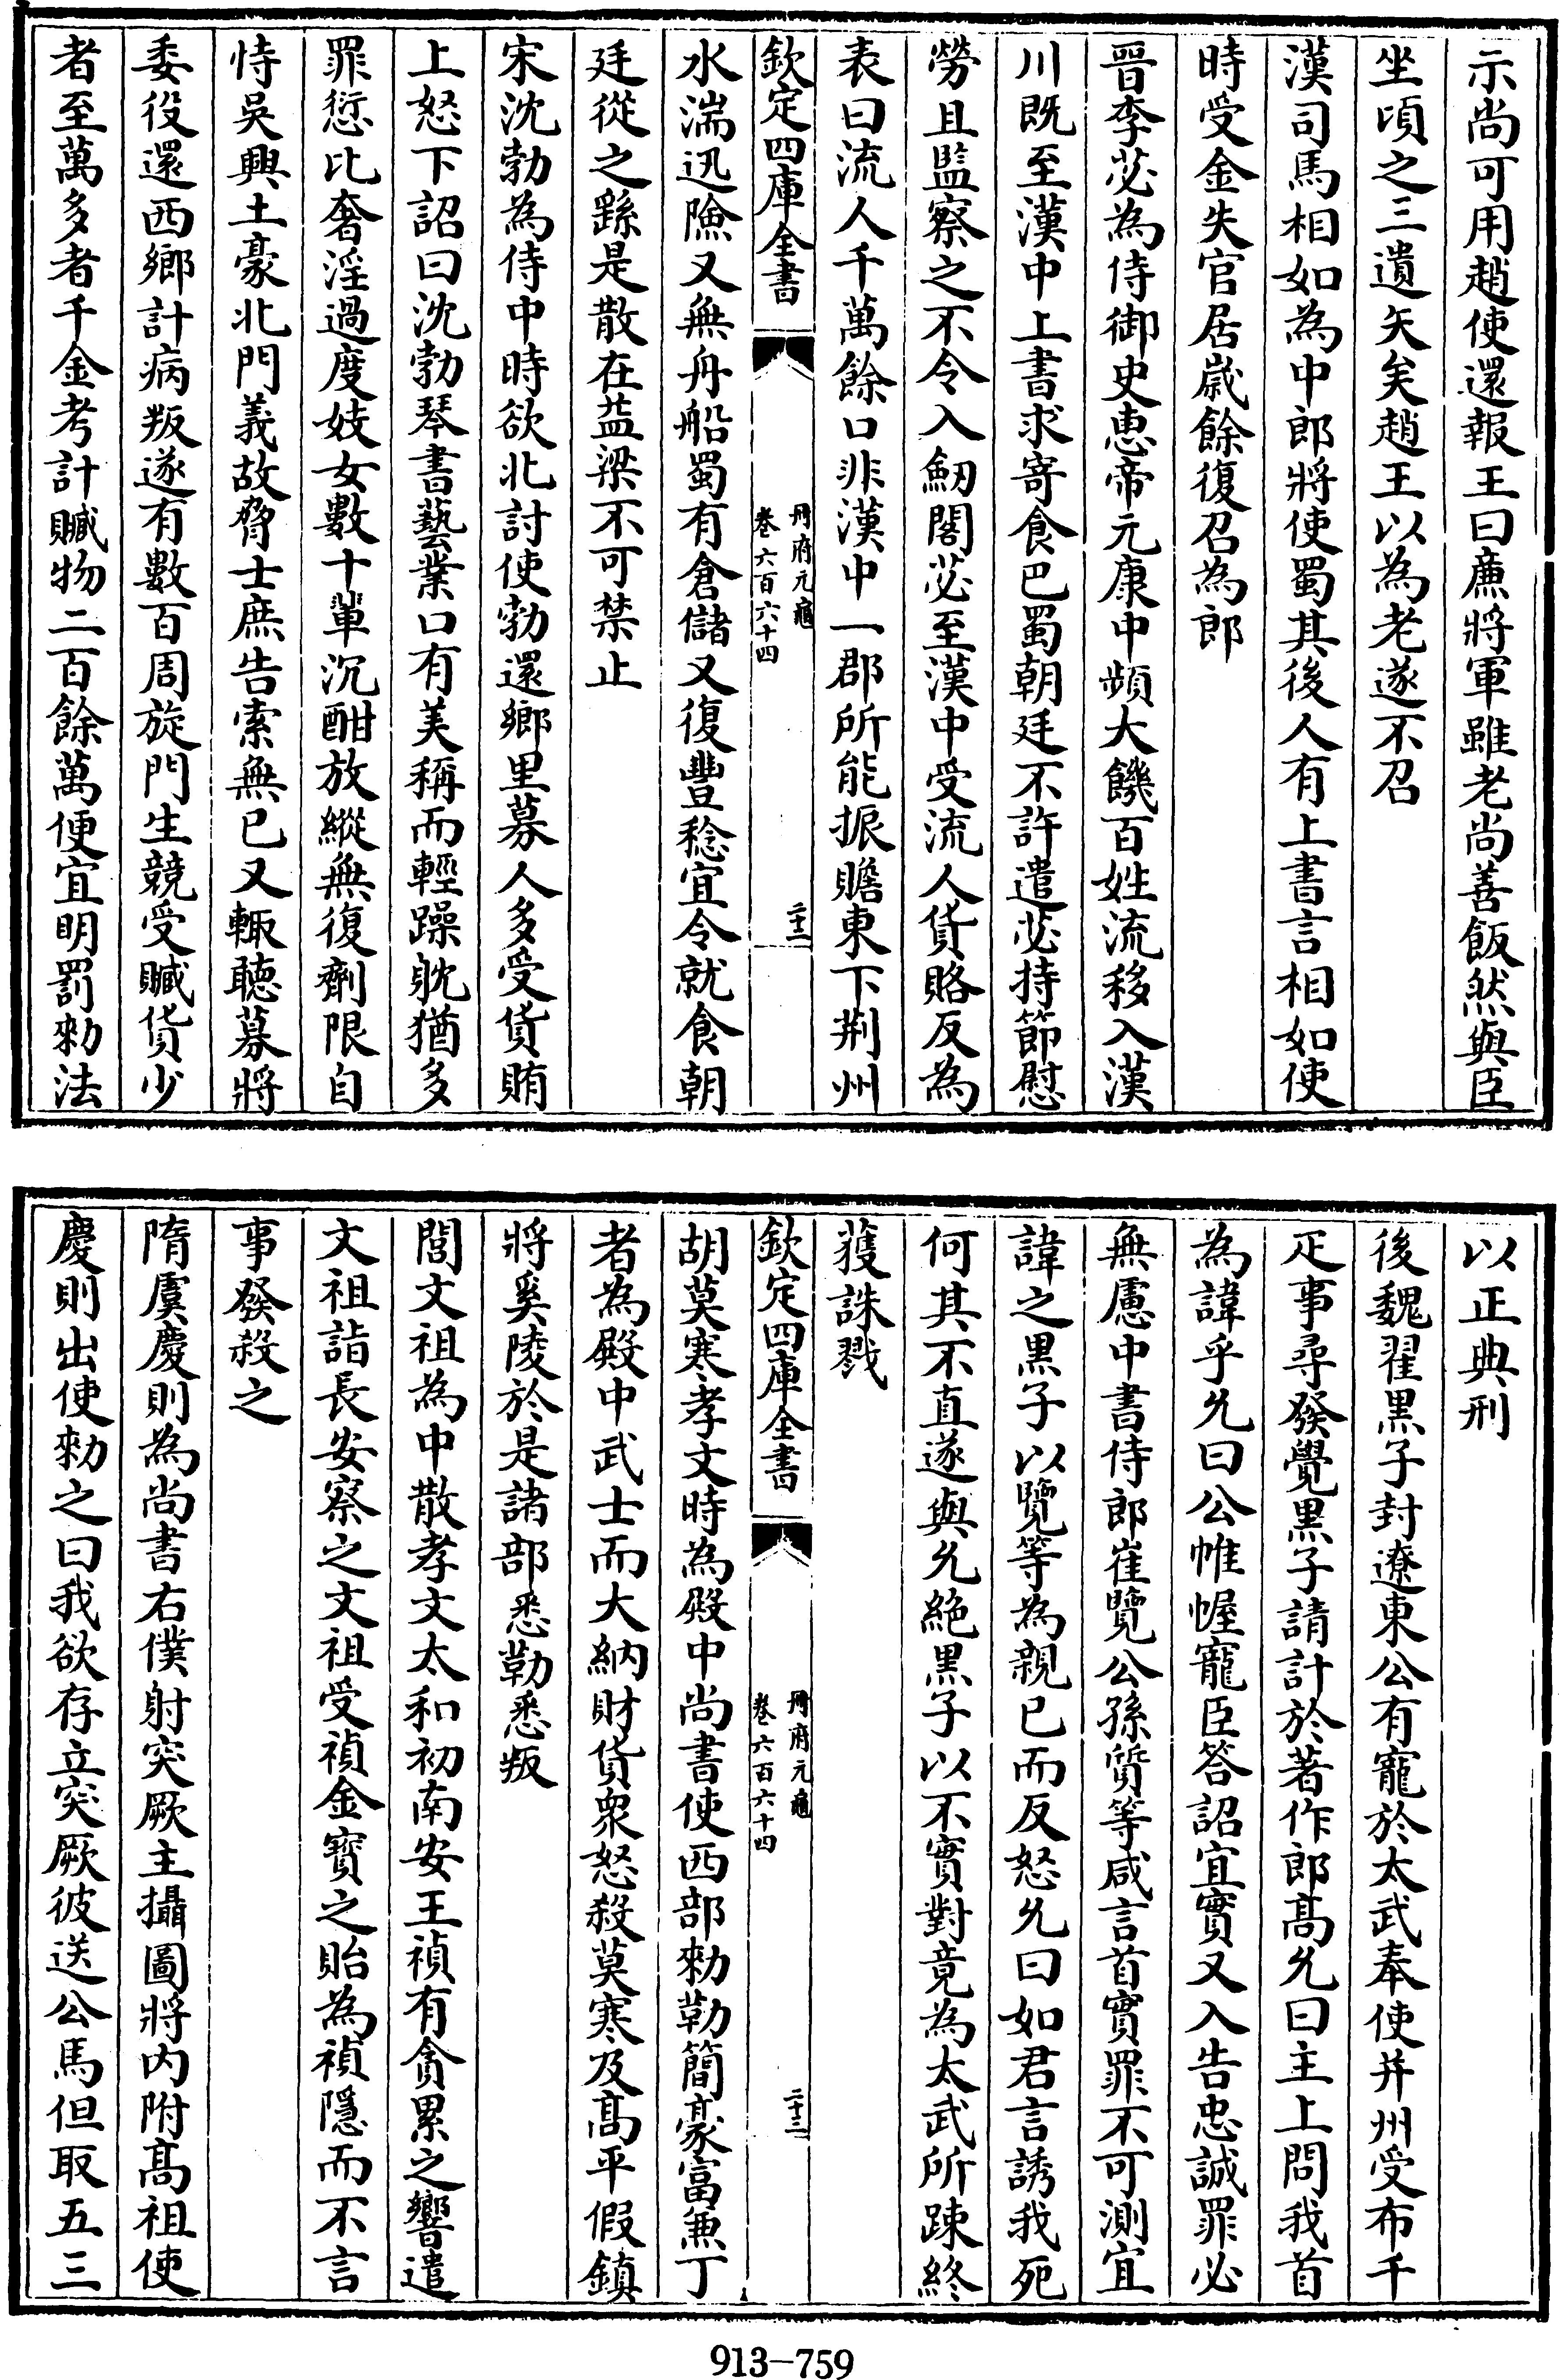 示尚可用趙使還報王曰亷將軍雖老尚善飯然與臣
坐頃之三遺矢矣趙王以為老遂不召
漢司馬相如為中郎將使蜀其後人有上書言相如使
時受金失官居歳餘復召為郎
晉李苾為侍御史恵帝元康中頻大饑百姓流移入漢
川既至漢中上書求寄食巴蜀朝廷不許遣苾持節慰
勞且監察之不令入劒閣苾至漢中受流人貨賂反為
表曰流人千萬餘口非漢中一郡所能振贍東下荆州
欽定四庫全書
冊府元龜
卷六百六十四
二十二
水湍迅險又無舟船蜀有倉儲又復豐稔宜令就食朝
廷從之繇是散在益梁不可禁止
宋沈勃為侍中時欲北討使勃還鄉里募人多受貨賄
上怒下詔曰沈勃琴書藝業口有美稱而輕躁躭猶多
罪愆比奢淫過度妓女數十輩沉酣放縱無復劑限自
恃吳興土豪北門義故脅士庶告索無已又輙聽募將
委役還西鄉計病叛遂有數百周旋門生競受贓貨少
者至萬多者千金考計贓物二百餘萬便宜明罰勑法
以正典刑
後魏翟黒子封遼東公有寵於太武奉使并州受布千
疋事尋發覺黒子請計於著作郎髙允曰主上問我首
為諱乎允曰公帷幄寵臣答詔宜實又入告忠誠罪必
無慮中書侍郎崔覽公孫質等咸言首實罪不可測宜
諱之黒子以覽等為親已而反怒允曰如君言誘我死
何其不直遂與允絶黒子以不實對竟為太武所踈終
獲誅戮
欽定四庫全書
冊府元龜
卷六百六十四
二十三
胡莫寒孝文時為殿中尚書使西部勑勒簡豪富兼丁
者為殿中武士而大納財貨衆怒殺莫寒及髙平假鎮
將奚陵於是諸部悉勒悉叛
閭文祖為中散孝文太和初南安王禎有貪累之響遣
文祖詣長安察之文祖受禎金寳之貽為禎隱而不言
事發殺之
隋虞慶則為尚書右僕射突厥主攝圖將内附髙祖使
慶則出使勑之曰我欲存立突厥彼送公馬但取五三
913-759